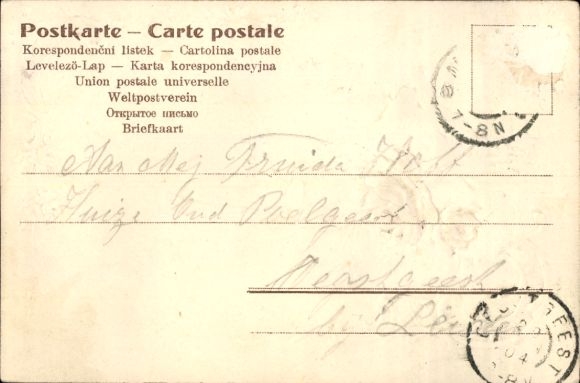 Postkarte – Carte postale
Korespondenční lístek – Cartolina postale
Levelező-Lap – Karta korespondencyjna
Union postale universelle
Weltpostverein
Открытое письмо
Briefkaart
7-8N
Aan Mej
Huize Oud Poelgeest
Oegstgeest
bij Leiden